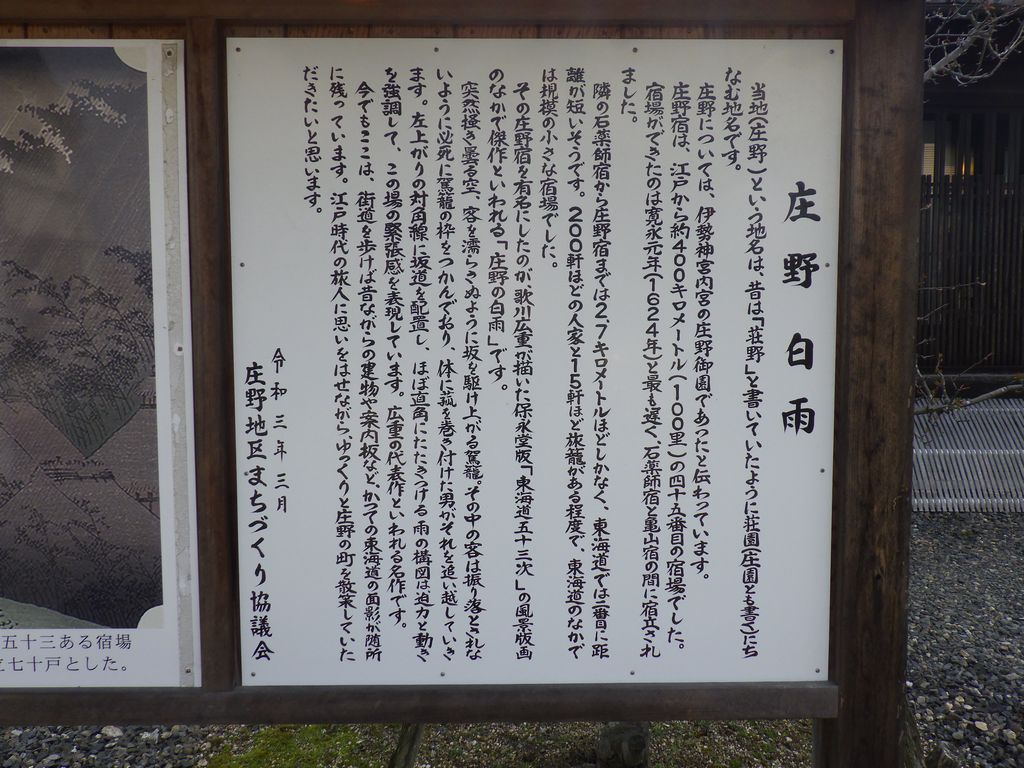 庄野白雨
当地(庄野)という地名は、昔は「荘野」と書いていたように荘園(庄園とも書く)にち
なむ地名です。
庄野については、伊勢神宮内宮の庄野御園であったと伝わっています。
庄野宿は、江戸から約400キロメートル(100里)の四十五番目の宿場でした。
宿場ができたのは寛永元年(1624年)と最も遅く、石薬師宿と亀山宿の間に宿立され
ました。
隣の石薬師宿から庄野宿までは2.7キロメートルほどしかなく、東海道では二番目に距
離が短いそうです。200軒ほどの人家と15軒ほど旅籠がある程度で、東海道のなかで
は規模の小さな宿場でした。
その庄野宿を有名にしたのが、歌川広重が描いた保永堂版「東海道五十三次」の風景版画
のなかで傑作といわれる「庄野の白雨」です。
突然掻き曇る空、客を濡らさぬように坂を駆け上がる駕籠。その中の客は振り落とされな
いように必死に駕籠の枠をつかんでおり、体に菰を巻き付けた男がそれを追い越していき
ます。左上がりの対角線に坂道を配置し、ほぼ直角にたたきつける雨の構図は迫力と動き
を強調して、この場の緊張感を表現しています。広重の代表作といわれる名作です。
今でもここは、街道を歩けば昔ながらの建物や案内板など、かつての東海道の面影が随所
に残っています。江戸時代の旅人に思いをはせながらゆっくりと庄野の町を散策していた
だきたいと思います。
令和三年三月
庄野地区まちづくり協議会
五十三ある宿場
七十戸とした。